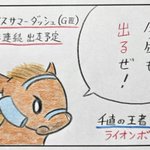 スサマーダッシュ(GⅢ)
連続 出走予定
も
出るぜ!
千直の王者
ライオンボ